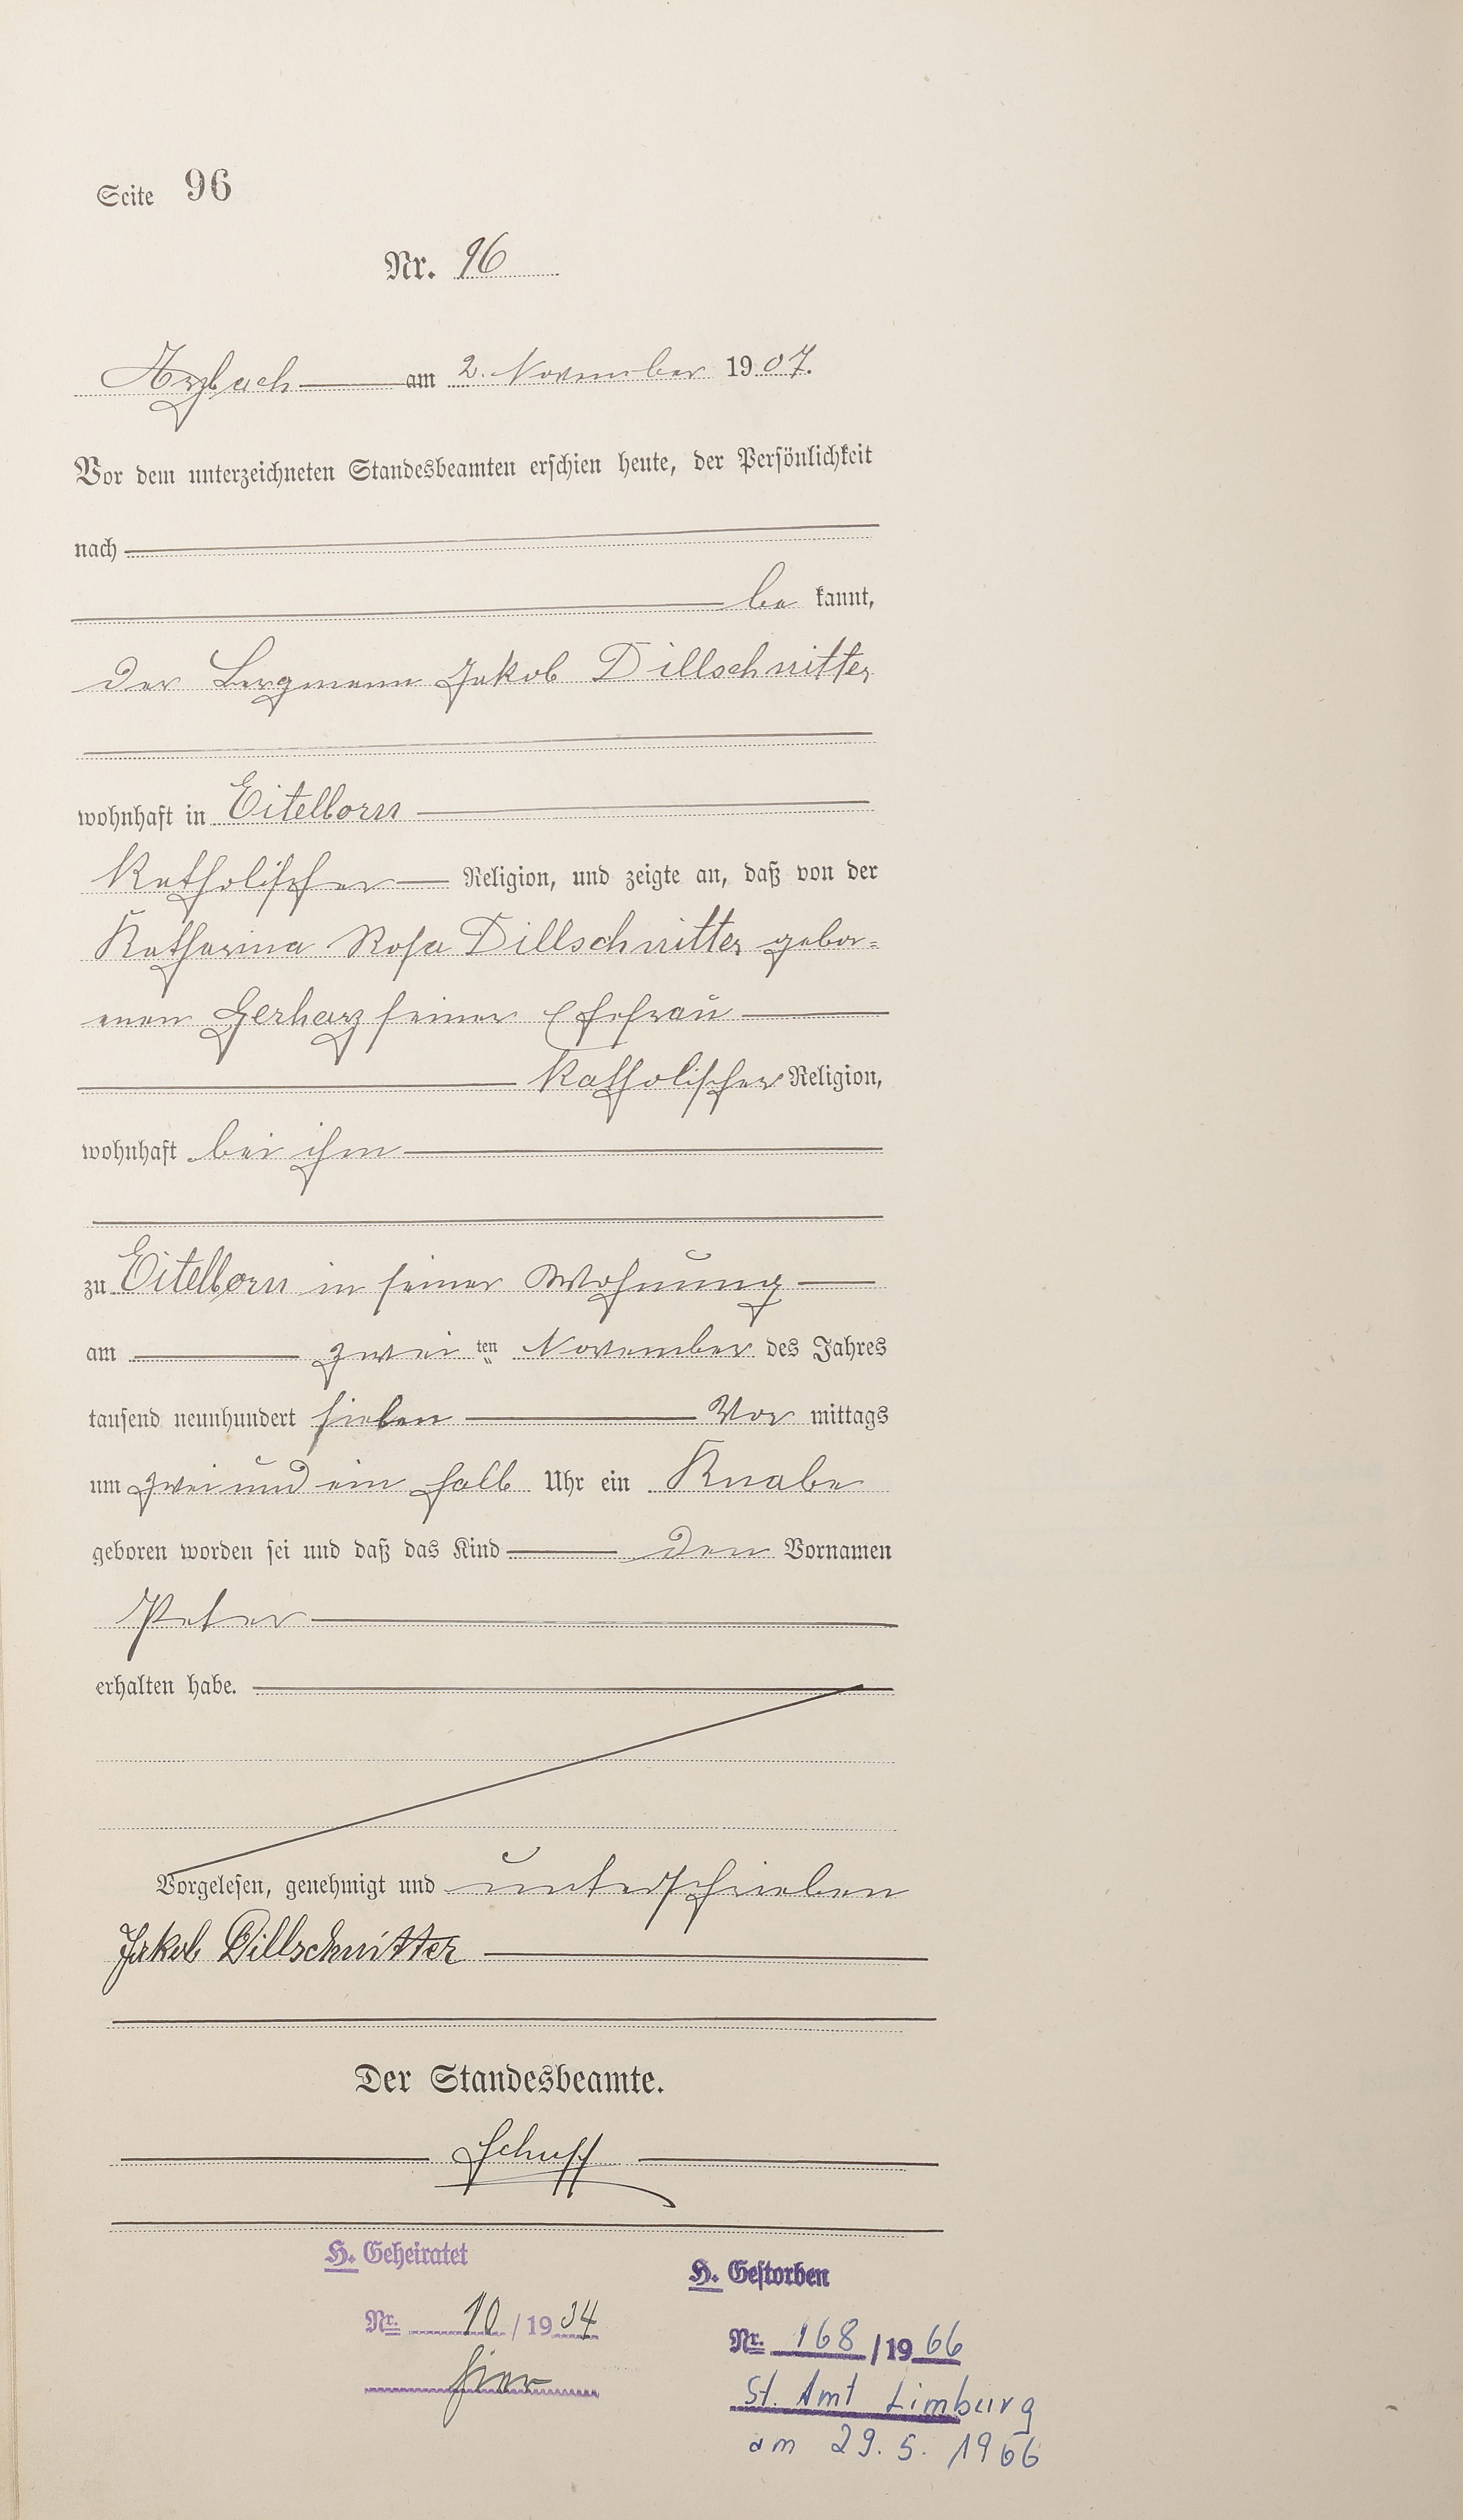 Seite 96
Nr. 96
Arzbach am 2. November 1907.
Vor dem unterzeichneten Standesbeamten erschien heute, der Persönlichkeit
nach
be kannt,
der Bergmann Jakob Dillschnitter
wohnhaft in Eitelborn
katholischer Religion, und zeigte an, daß von der
Katharina Rosa Dillschnitter gebor-
enen Gerharz seiner Ehefrau
katholischer Religion,
wohnhaft bei ihm
zu Eitelborn in seiner Wohnung
am zwei ten November des Jahres
tausend neunhundert sieben Vor mittags
um zwei und ein halb Uhr ein Knabe
geboren worden sei und daß das Kind den Vornamen
Peter
erhalten habe.
Vorgelesen, genehmigt und unterschrieben
Jakob Dillschnitter
Der Standesbeamte.
Schupp
H. Geheiratet
Nr. 10/1934
hier
H. Gestorben
Nr. 168/1966
St. Amt Limburg
am 29. 5. 1966